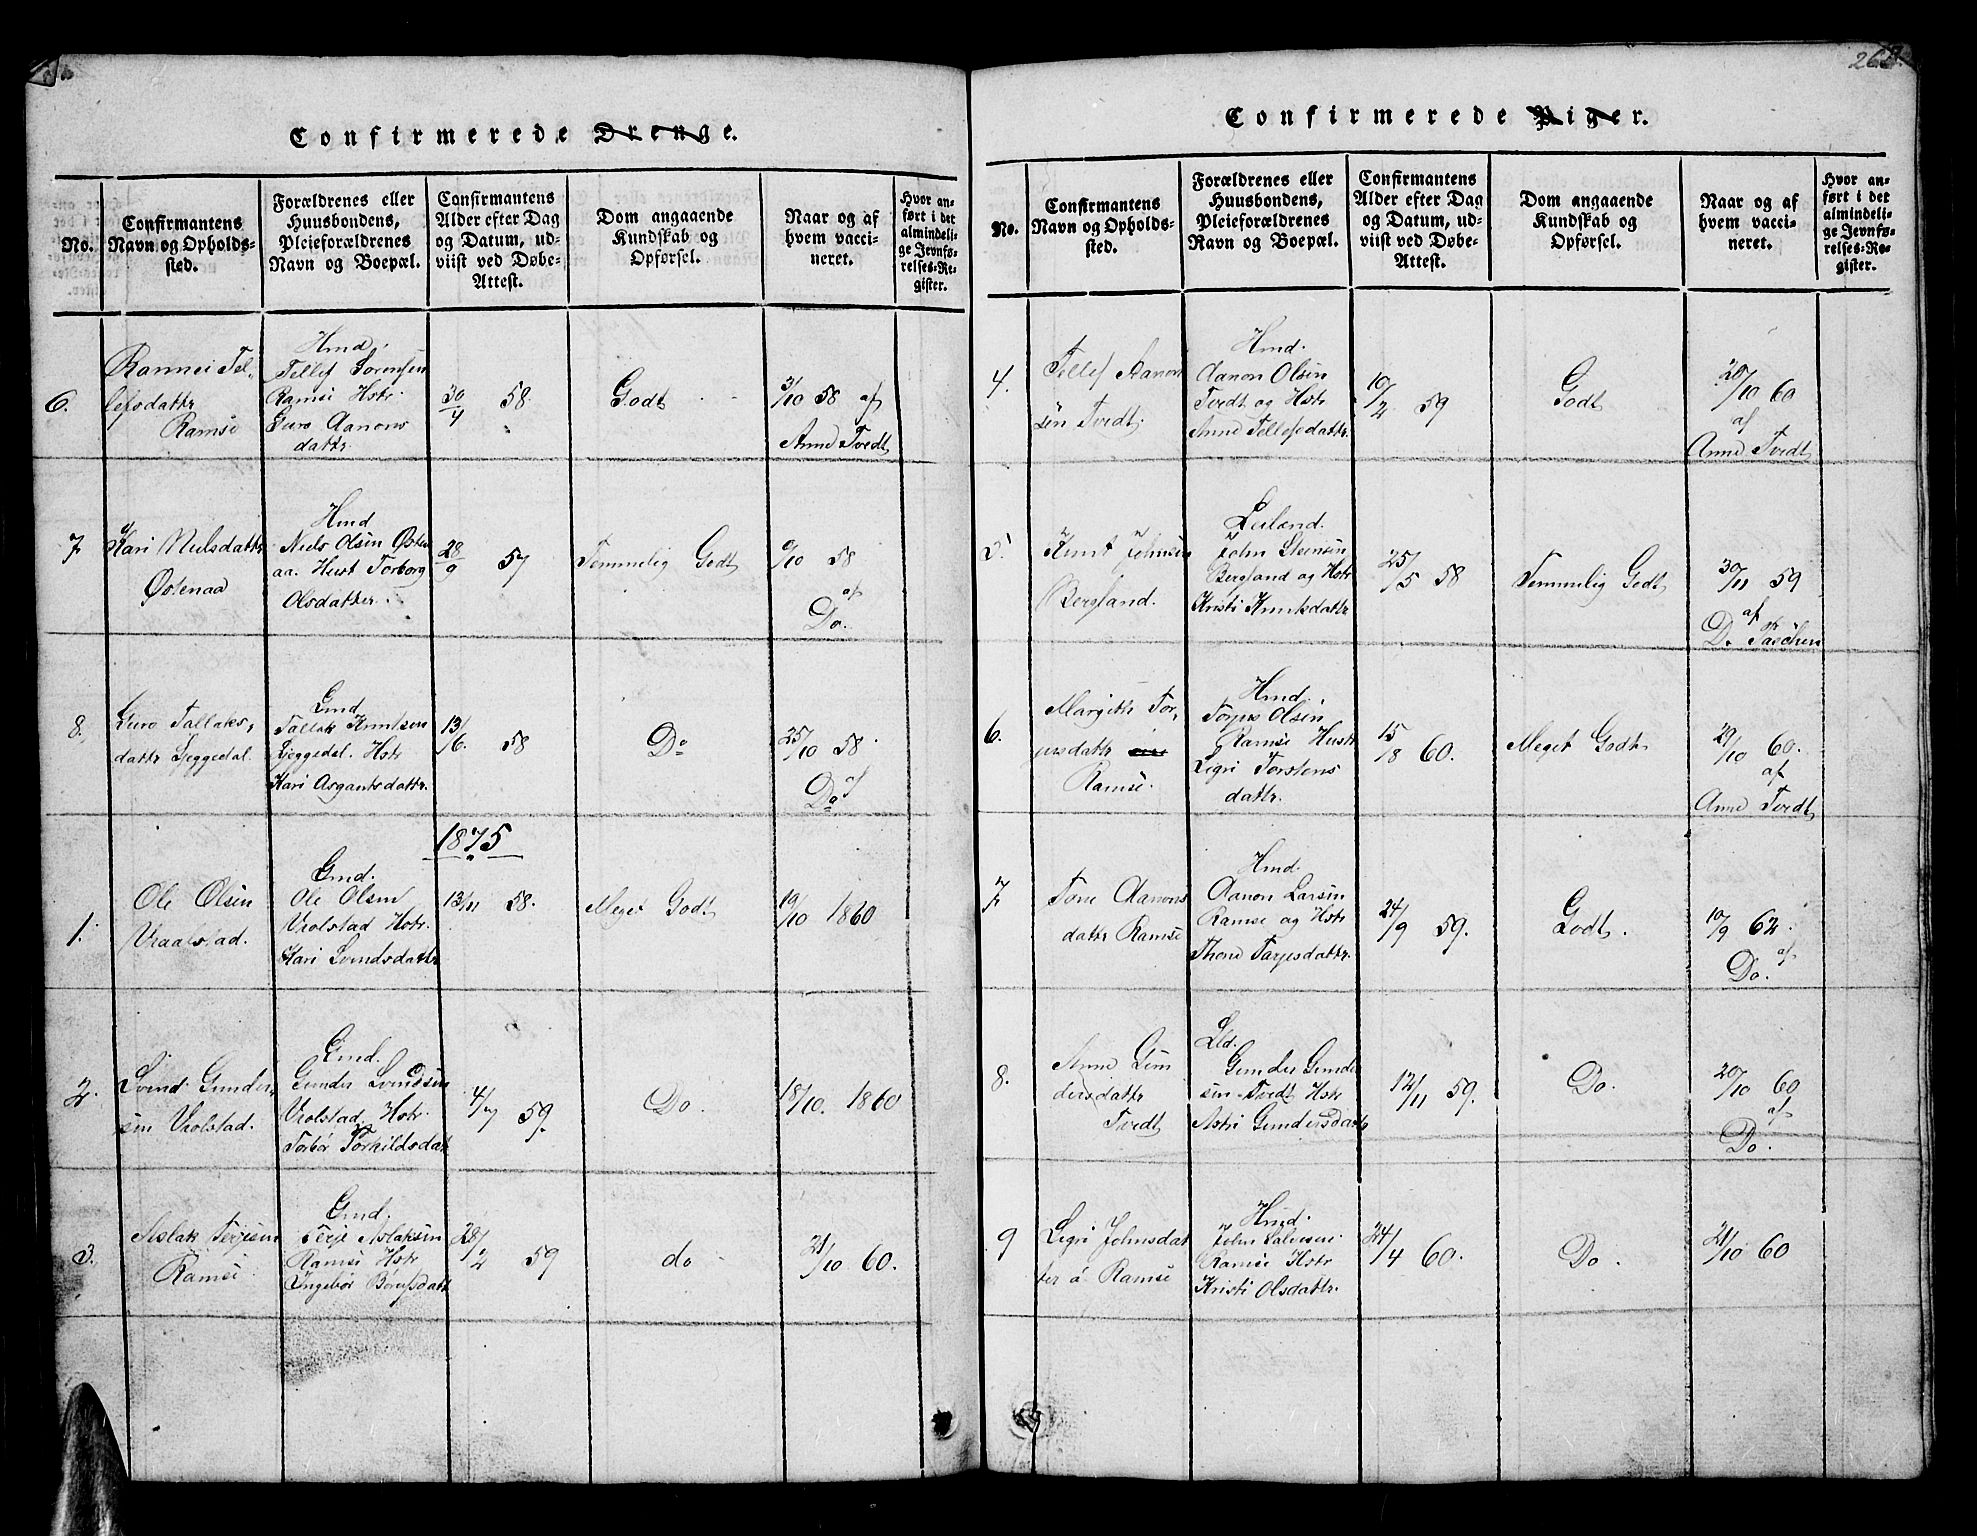 Confirmerede Drenge.
No.
Confirmantens
Navn og Opholds-
sted.
Forældrenes eller
Huusbondens,
Pleieforældrenes
Navn og Boepæl.
Confirmantens
Alder efter Dag
og Datum, ud-
viist ved Døbe-
Attest.
Dom angaaende
Kundskab og
Opførsel.
Naar og af
hvem vacci-
neret.
Hvor an-
ført i det
almindeli-
ge Jevnfø-
relses-Re-
gister.
6.
Rannei Tel-
lefsdattr
Ramse
Hmd.
Tellef Sørensen
Ramse Hstr.
Guro Aanons
dattr.
30/4 58.
Godt
31/10 58 af
Anne Tvedt
7
Kari Nielsdattr
Østenaa
Hmd
Niels Olsen Østen
aa. Hust Torborg
Olsdatter.
28/9 57
Temmelig Godt
9/10 58
af
Do.
8.
Guro Tallaks-
dattr Ljeggedal.
Gmd
Tallak Knutsen
Ljeggedal. Hstr
Kari Asgautsdattr.
13/6. 58
Do
25/10 58.
af
Do
1875
1.
Ole Olsen
Vraalstad.
Gmd.
Ole Olsen
Vrolstad Hstr.
Kari Svendsdattr
13/11 58.
Meget Godt
19/10 1860
2.
Svend Gunder-
sen Vrolstad.
Gmd.
Gunder Svendsen
Vrolstad, Hstr.
Torbør Torkildsdat
4/7 59.
Do.
18/10. 1860
3.
Aslak Terjesen
Ramse
Gmd.
Terje Aslaksen
Ramse Hstr
Ingebør Børufsdatt
28/2 59
do
21/10 60.
Confirmerede Piger.
No.
Confirmantens
Navn og Opholds-
sted.
Forældrenes eller
Huusbondens,
Pleieforældrenes
Navn og Boepæl.
Confirmantens
Alder efter Dag
og Datum, ud-
viist ved Døbe-
Attest.
Dom angaaende
Kundskab og
Opførsel.
Naar og af
hvem vacci-
neret.
Hvor an-
ført i det
almindeli-
ge Jevnfø-
relses-Re-
gister.
4.
Tellef Aanon
sen Tvedt.
Hmd.
Aanon Olsen
Tvedt og Hstr
Anne Tellefsdattr.
10/2 59
Godt
20/10 60
af
Anne Tvedt
5.
Knut Johnsen
Bergland.
Leilænd.
John Steensen
Bergland og Hstr
Kristi Knutsdattr
25/5 58
Temmelig Godt
30/11 59
af
6.
Margith Tor-
jusdattr
Ramse.
Hmd.
Torjus Olsen
Ramse Hustr
Sigri Torstens
dattr.
15/8 60.
Meget Godt
29/10 60.
af
Anne Tvedt
7
Tone Aanons
dattr Ramse
Hmd.
Aanon Larsen
Ramse og Hstr
Thone Tarjesdattr.
24/9 59.
Godt.
10/9 62.
af
Do.
8.
Anne Gun
dersdattr
Tvedt
Lld.
Gunder Gunder
sen Tvedt Hstr
Astri Gundersdattr
12/11 59.
Do.
20/10 60
af
Do.
9
Sigri Johnsdat
ter á Ramse
Hmd.
John Salvesen
Ramse Hstr
Kristi Olsdattr.
24/4 60.
Do.
21/10 60